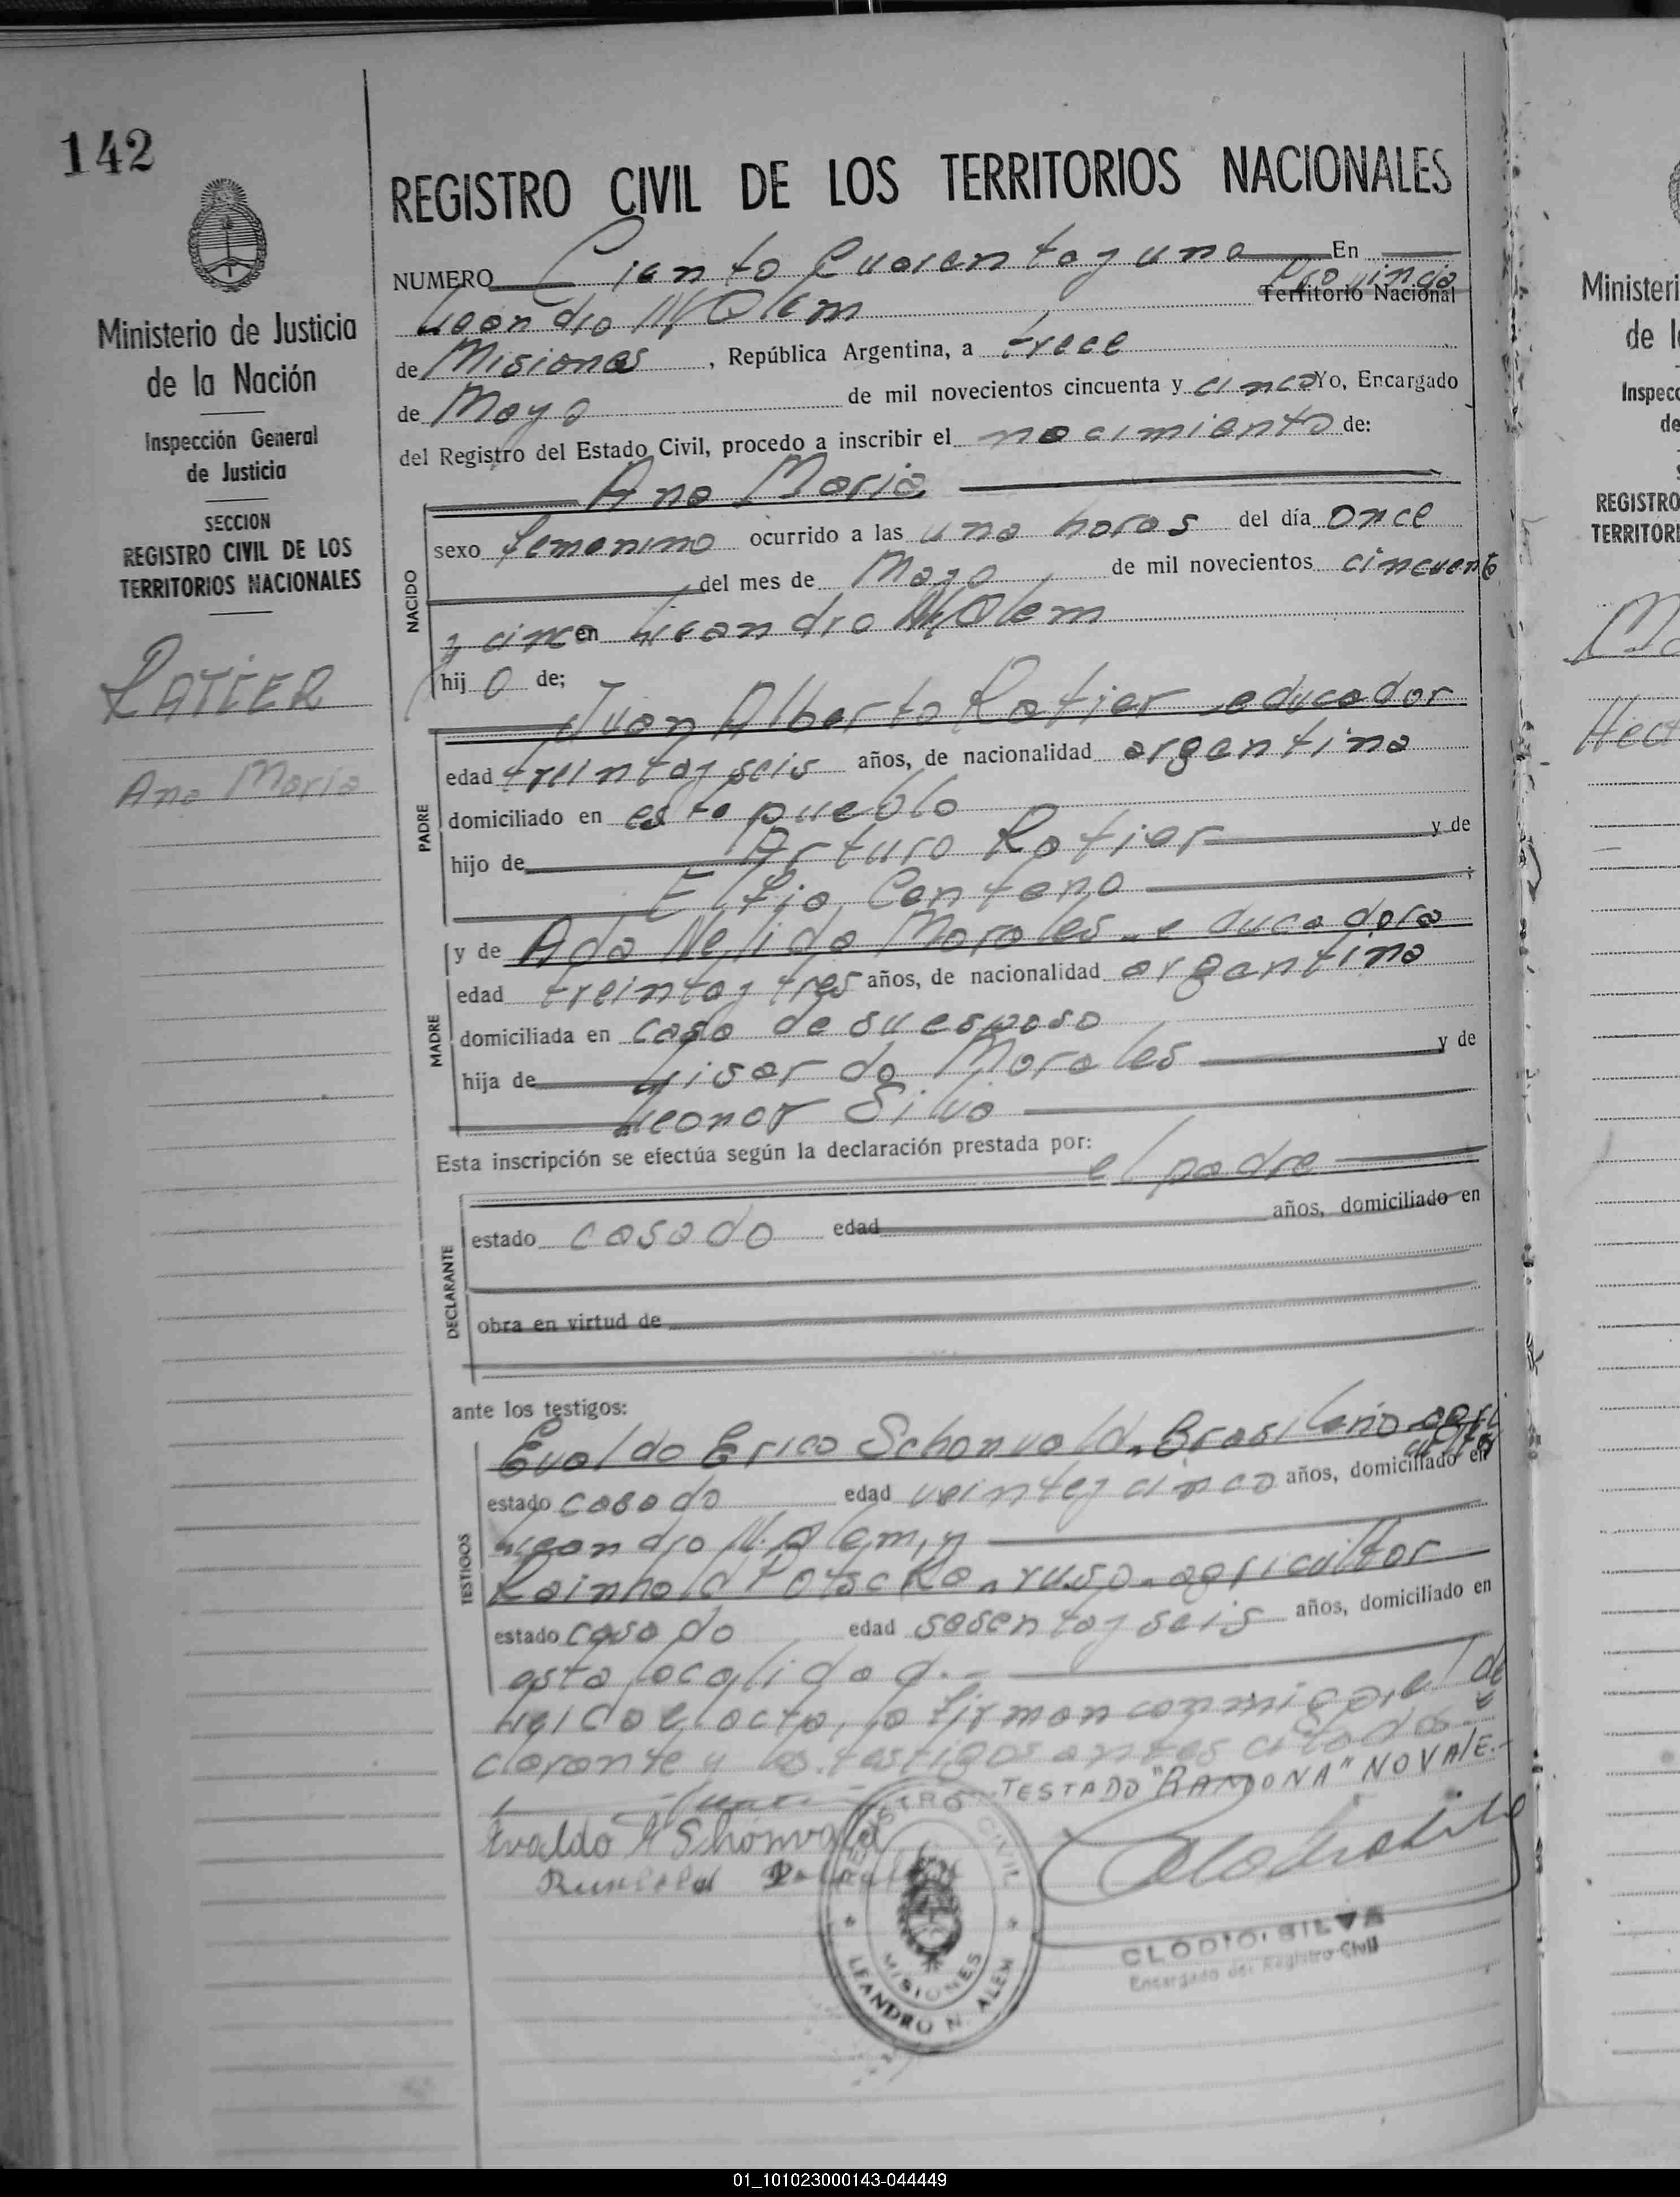 142
REGISTRO CIVIL DE LOS TERRITORIOS NACIONALES
Ministerio de Justicia
de la Nación
Inspección General
de Justicia
SECCION
REGISTRO CIVIL DE LOS
TERRITORIOS NACIONALES
RATIER
Ana María
NUMERO Ciento Cuarenta y uno En
Leandro N. Alem Provincia Territorio Nacional
de Misiones, República Argentina, a trece
de Mayo de mil novecientos cincuenta y cinco Yo, Encargado
del Registro del Estado Civil, procedo a inscribir el nacimiento de:
Ana Maria
NACIDO
sexo femenino ocurrido a las una horas del día once
del mes de Mayo de mil novecientos cincuenta
y cinco en Leandro N. Alem
hij a de;
PADRE
Juan Alberto Ratier educador
edad treinta y seis años, de nacionalidad argentina
domiciliado en este pueblo
hijo de Arturo Ratier y de
Centeno;
MADRE
y de Ada Nelida Morales - educadora
edad treinta y tres años, de nacionalidad argentina
domiciliada en casa de su esposo
hija de Lisardo Morales y de
Leonor Silva
Esta inscripción se efectúa según la declaración prestada por:
el padre
DECLARANTE
estado casado edad años, domiciliado en
obra en virtud de
ante los testigos:
TESTIGOS
Evaldo Erico Schonvald - Brasileño
estado casado edad veinte y cinco años, domiciliado en
Leandro N. Alem, y
Rainhold - ruso - agricultor
estado casado edad sesenta y seis años, domiciliado en
esta localidad. -
Leido el acta, la firman conmigo, el de
clarante y los testigos antes citados. -
TESTADO "RAMONA" NO VALE. -
Evaldo Schönvald
REGISTRO CIVIL
MISIONES
LEANDRO N. ALEM
CLODIO SILVA
Encargado del Registro Civil
Ministeri
de l
Inspecc
de
REGISTRO
TERRITORI
01_101023000143-044449